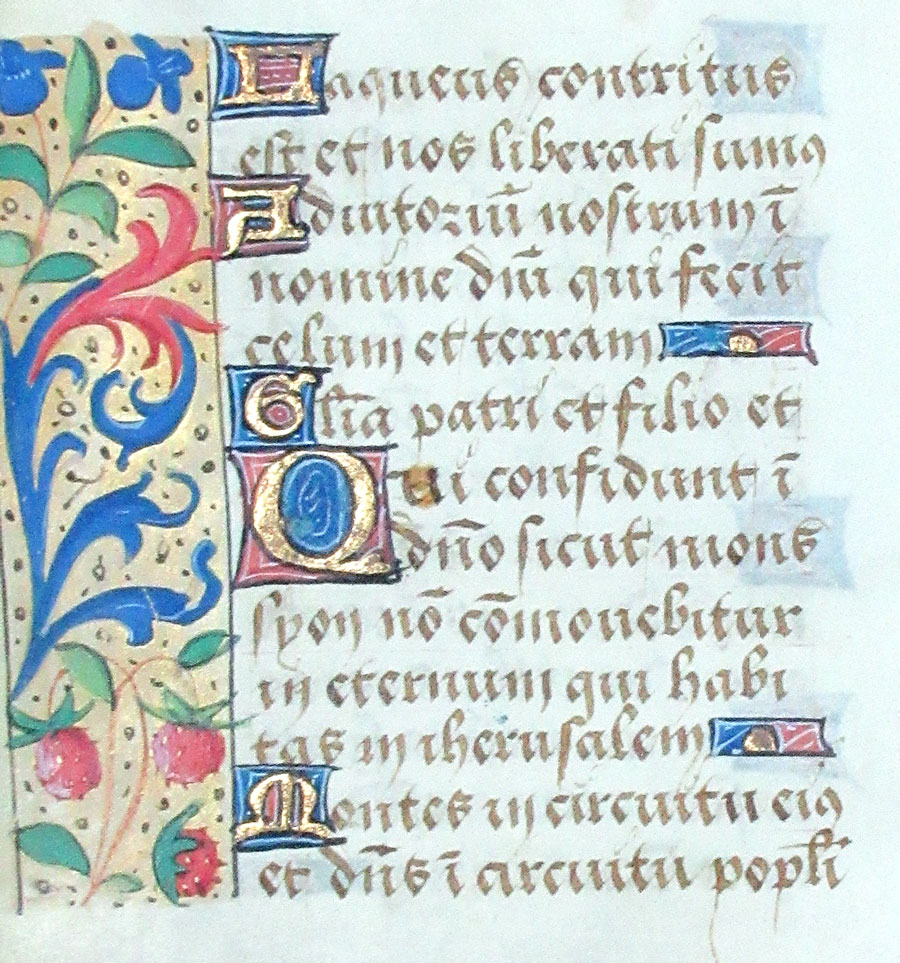 Laqueus contritus
est et nos liberati sumꝰ
Adiutoriũ nostrum ĩ
nomine dñi qui fecit
celum et terram
Glĩa patri et filio et
Qui confidunt ĩ
dño sicut mons
syon nõ cõmouebitur
in eternum qui habi
tas in iherusalem
Montes in circuitu eiꝰ
et dñs ĩ circuitu popľi